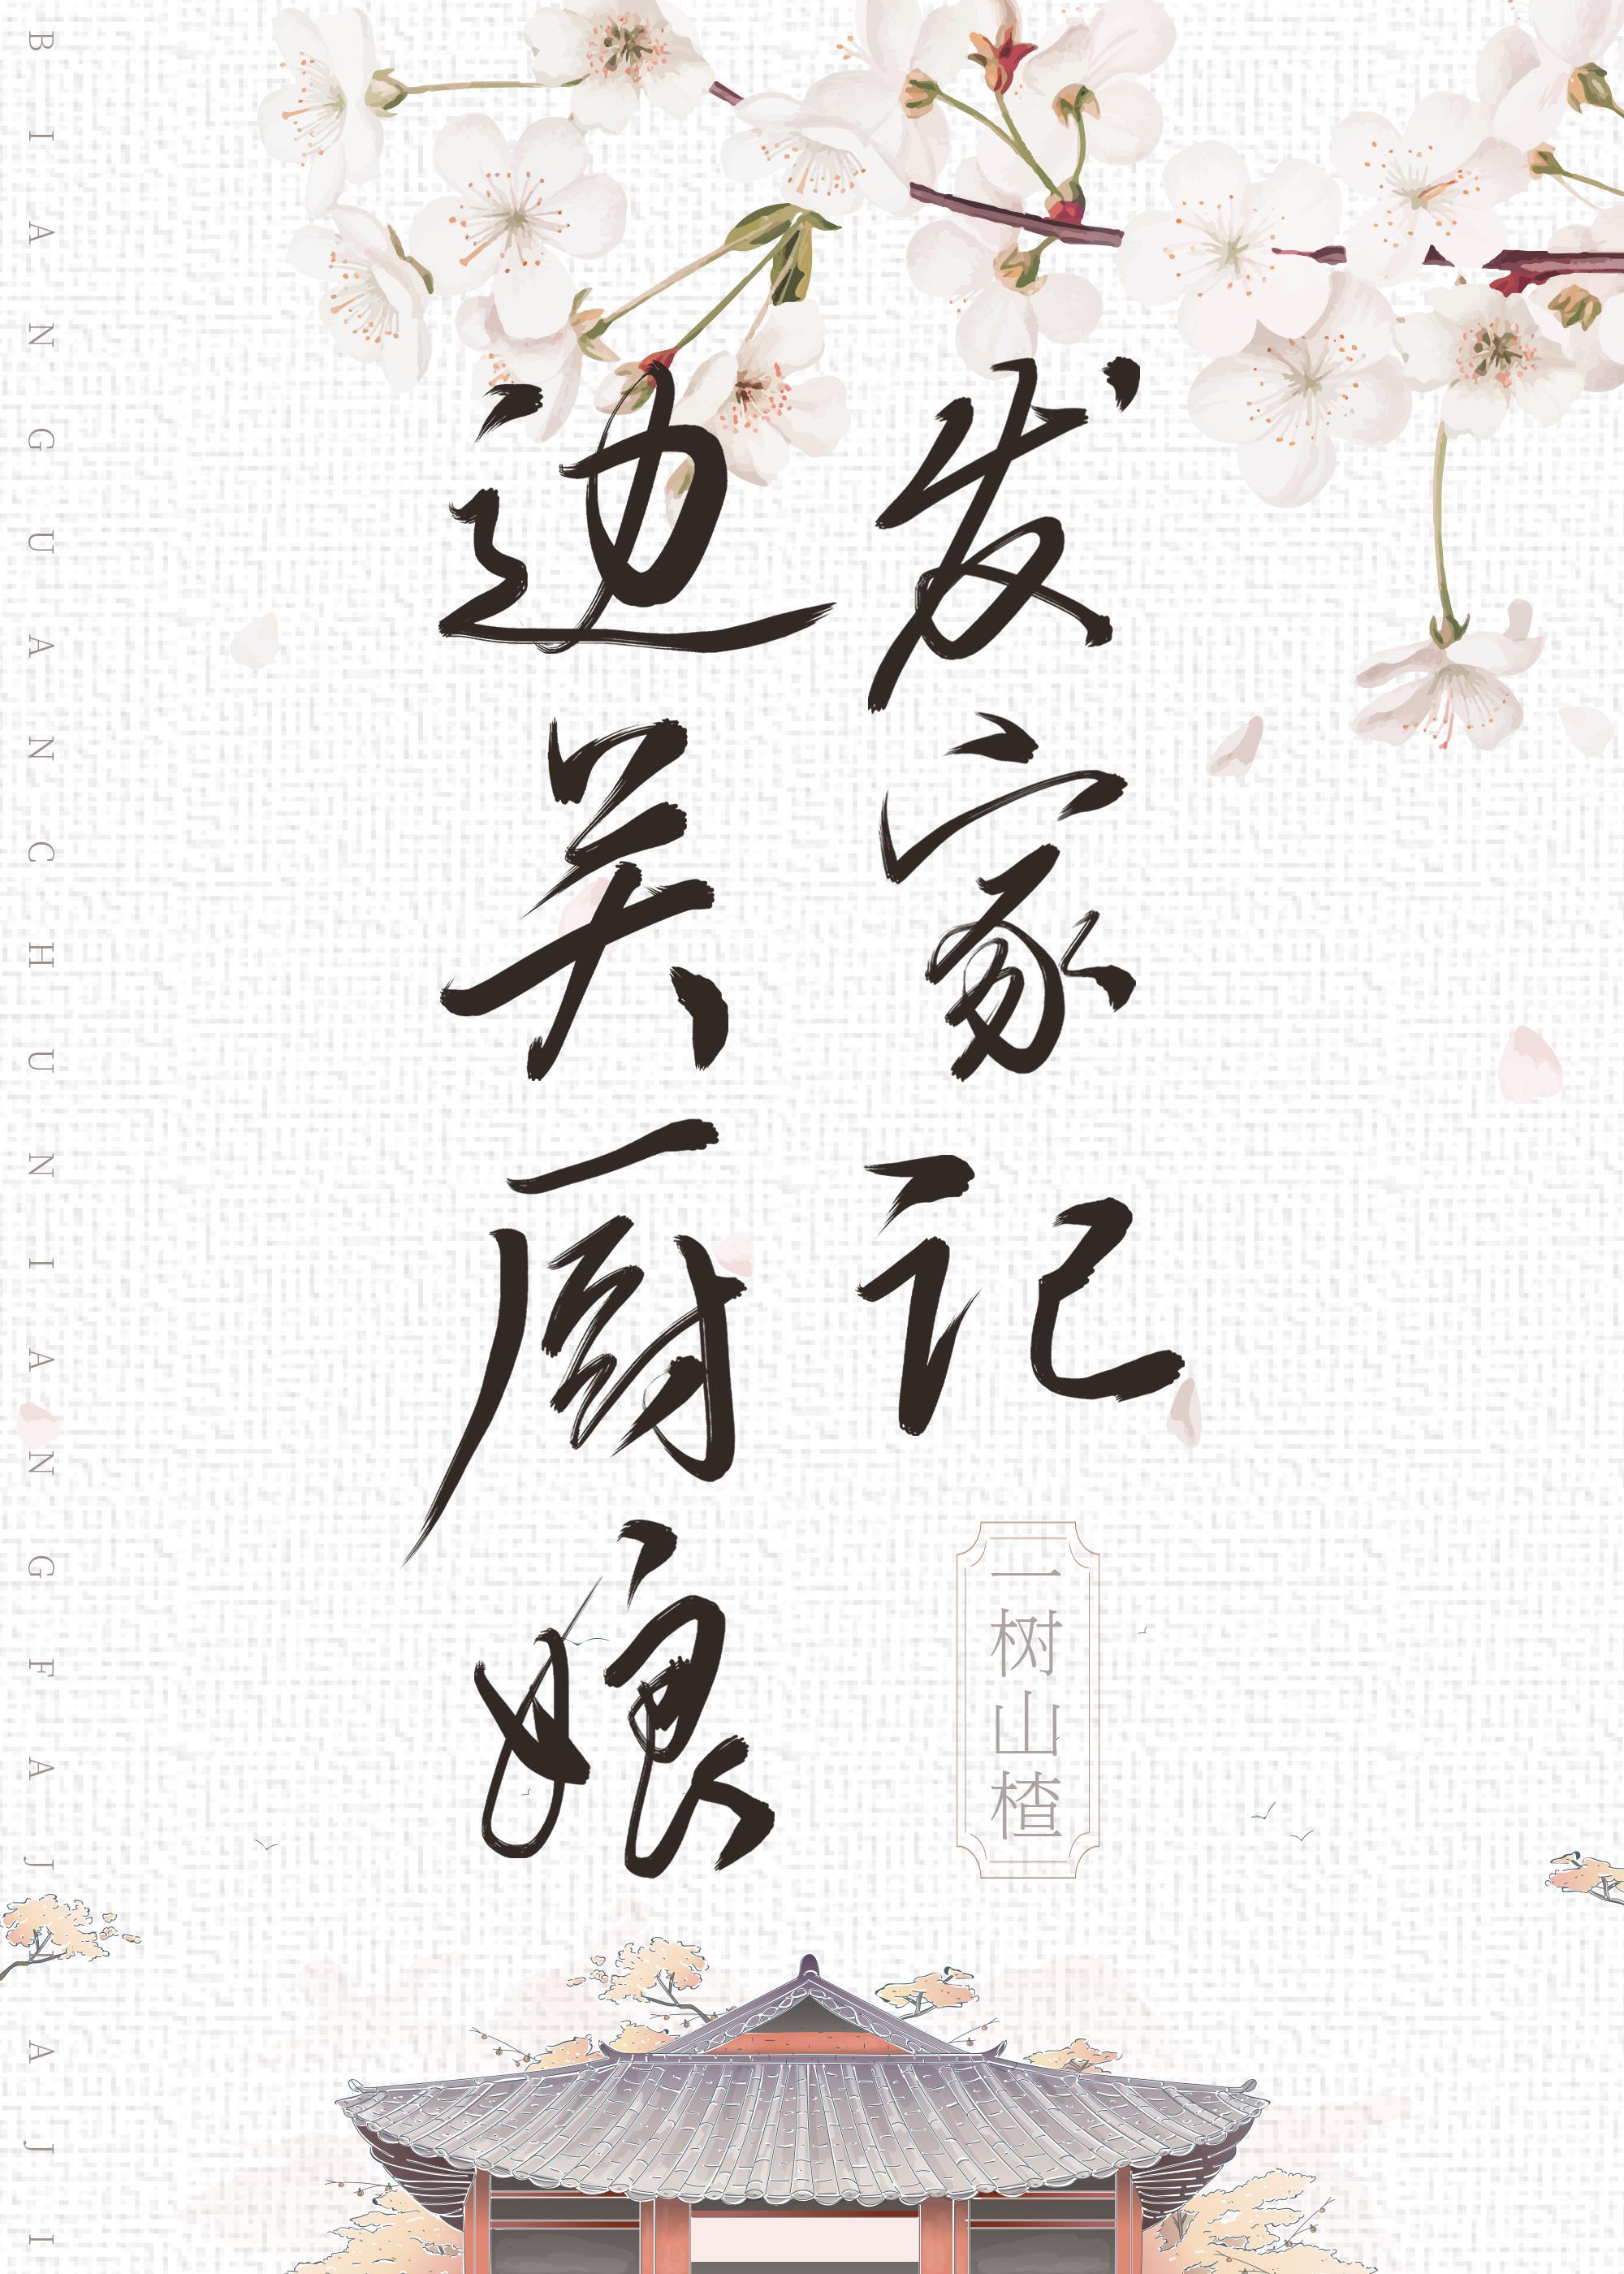 边关厨娘
发家记
一树山楂
BIANGUANCHUNIANGFAJIAJI